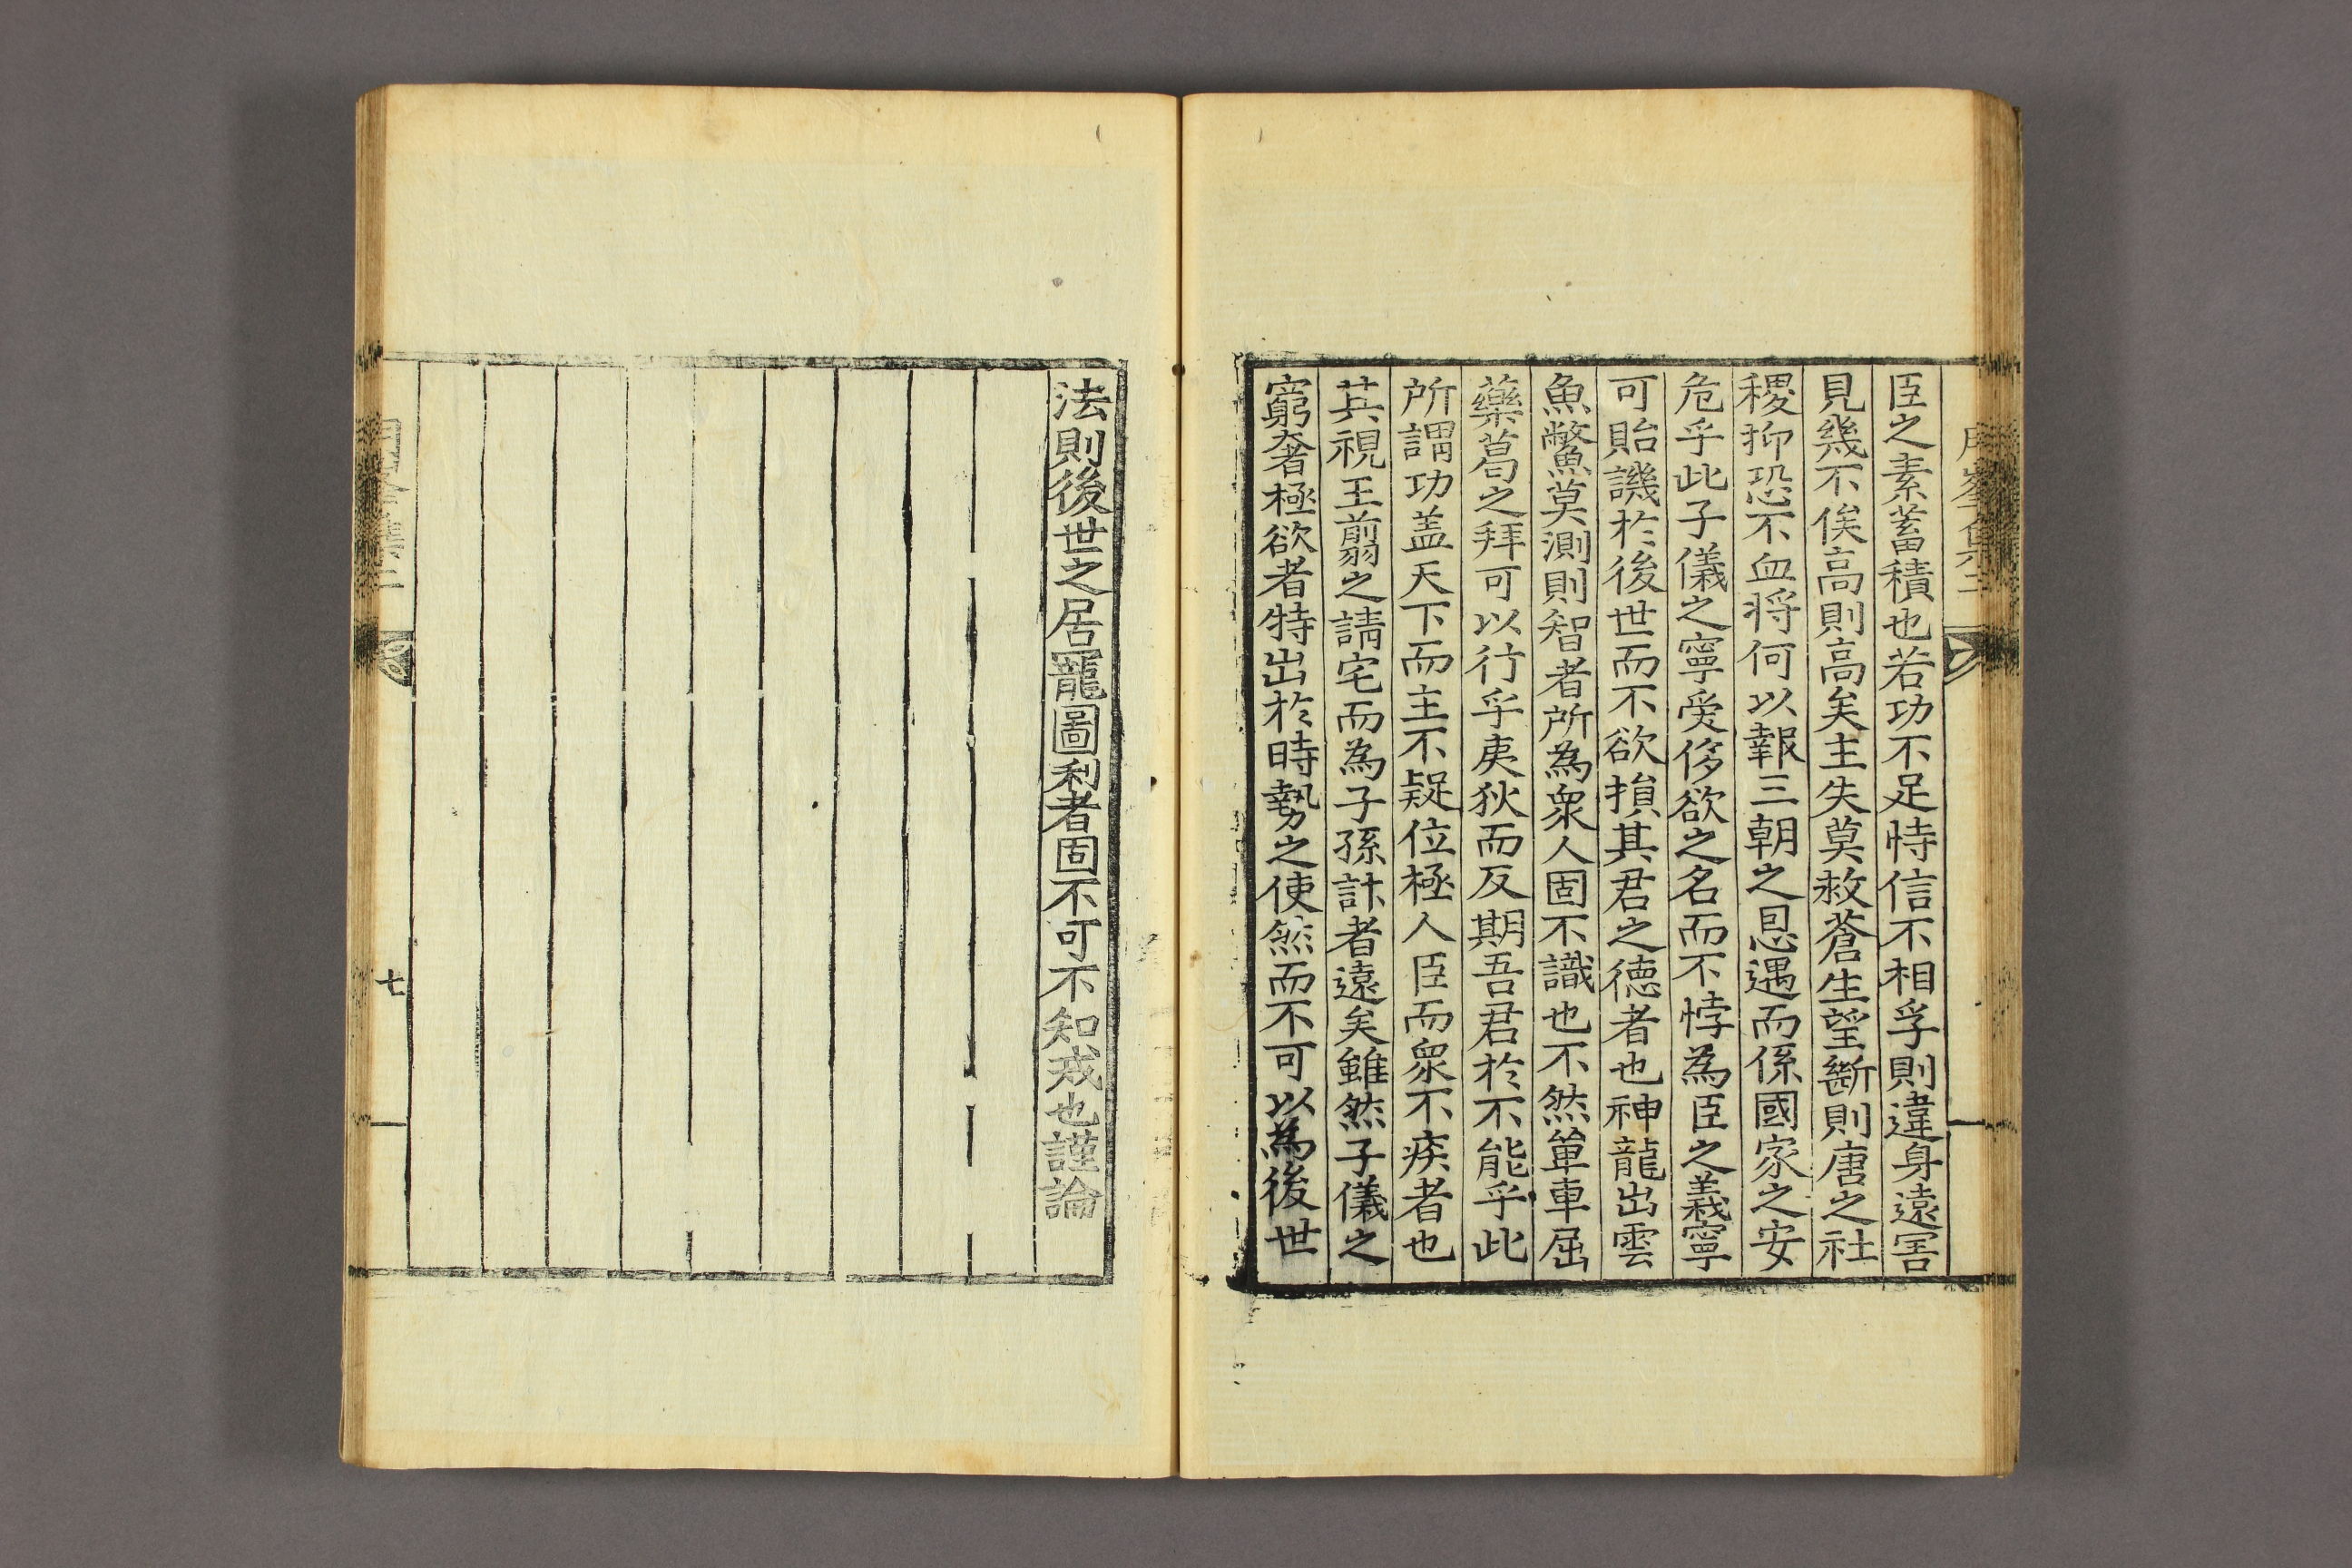 臣之素蓄積也若功不足恃信不相孚則違身遠害
見幾不俟高則高矣主失莫救蒼生望斷則唐之社
稷抑恐不血將何以報三朝之恩遇而係國家之安
危乎此子儀之寧受侈欲之名而不悖為臣之義寧
可貽譏於後世而不欲損其君之德者也神龍出雲
魚鱉莫測則智者所為衆人固不識也不然單車屈
藥葛之拜可以行乎夷狄而反期吾君於不能乎此
所謂功盖天下而主不疑位極人臣而衆不疾者也
其視王翦之請宅而為子孫計者遠矣雖然子儀之
窮奢極欲者特出於時勢之使然而不可以為後世
法則後世之居寵圖利者固不可不知戒也謹論
七